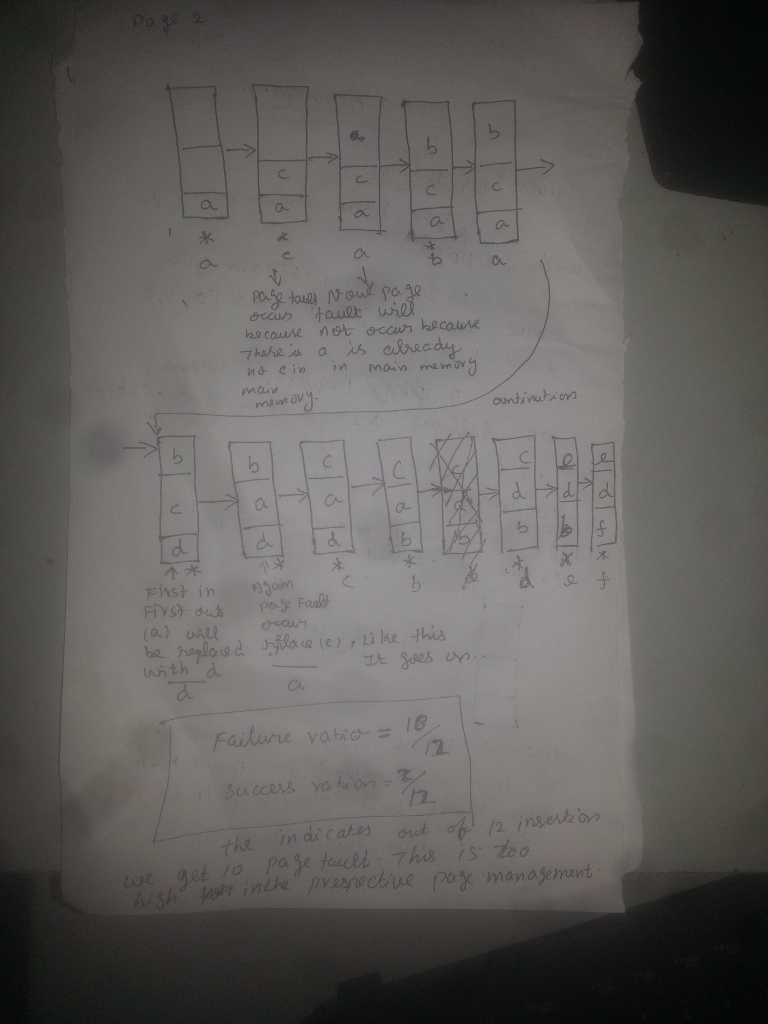 Page 2
a
c
a
a
c
a
b
c
a
b
c
a
* * *
a c a b a
Page fault
occurs
because
There is
no c in
main
memory.
Now page
fault will
not occur because
a is already
in main memory
continution
b
c
d
b
a
d
c
a
d
c
a
b
c
d
b
c
d
b
e
d
b
e
d
f
* * * * * * *
c b d e f
First in
First out
(a) will
be replaced
with d
d
Again
page Fault
occurs
replace (c), Like this
It goes on...
a
Failure ratio = 10/12
success ration = 2/12
the indicates out of 12 insertion
we get 10 page fault. This is too
high in the prespective page management.